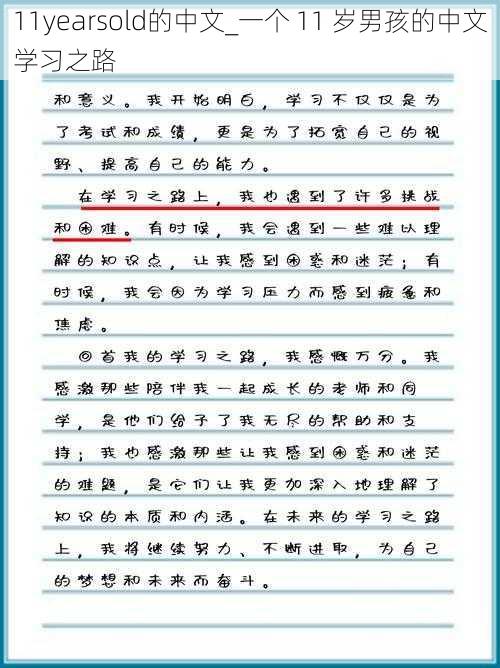 11yearsold的中文_一个 11 岁男孩的中文
学习之路
和意义。我开始明白，学习不仅仅是为
了考试和成绩，更是为了拓宽自己的视
野、提高自己的能力。
在学习之路上，我也遇到了许多挑战
和困难。有时候，我会遇到一些难以理
解的知识点，让我感到困惑和迷茫；有
时候，我会因为学习压力而感到疲惫和
焦虑。
回首我的学习之路，我感慨万分。我
感激那些陪伴我一起成长的老师和同
学，是他们给予了我无尽的帮助和支
持；我也感激那些让我感到困惑和迷茫
的难题，是它们让我更加深入地理解了
知识的本质和内涵。在未来的学习之路
上，我将继续努力、不断进取，为自己
的梦想和未来而奋斗。